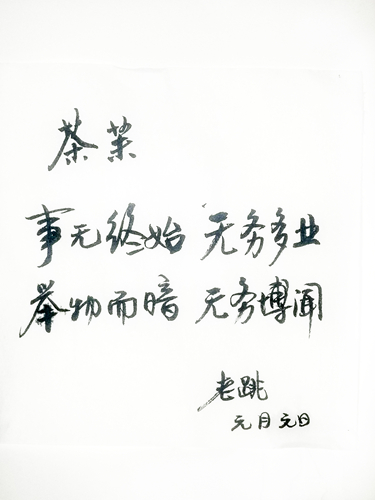 事无终始 无务多业
举物而暗 无务博闻
老跳
元月元日